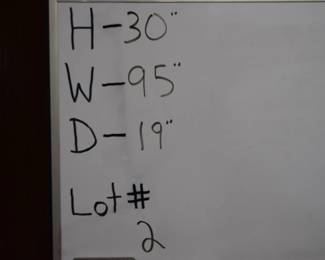 H-30"
W-95"
D-19"
Lot#
2